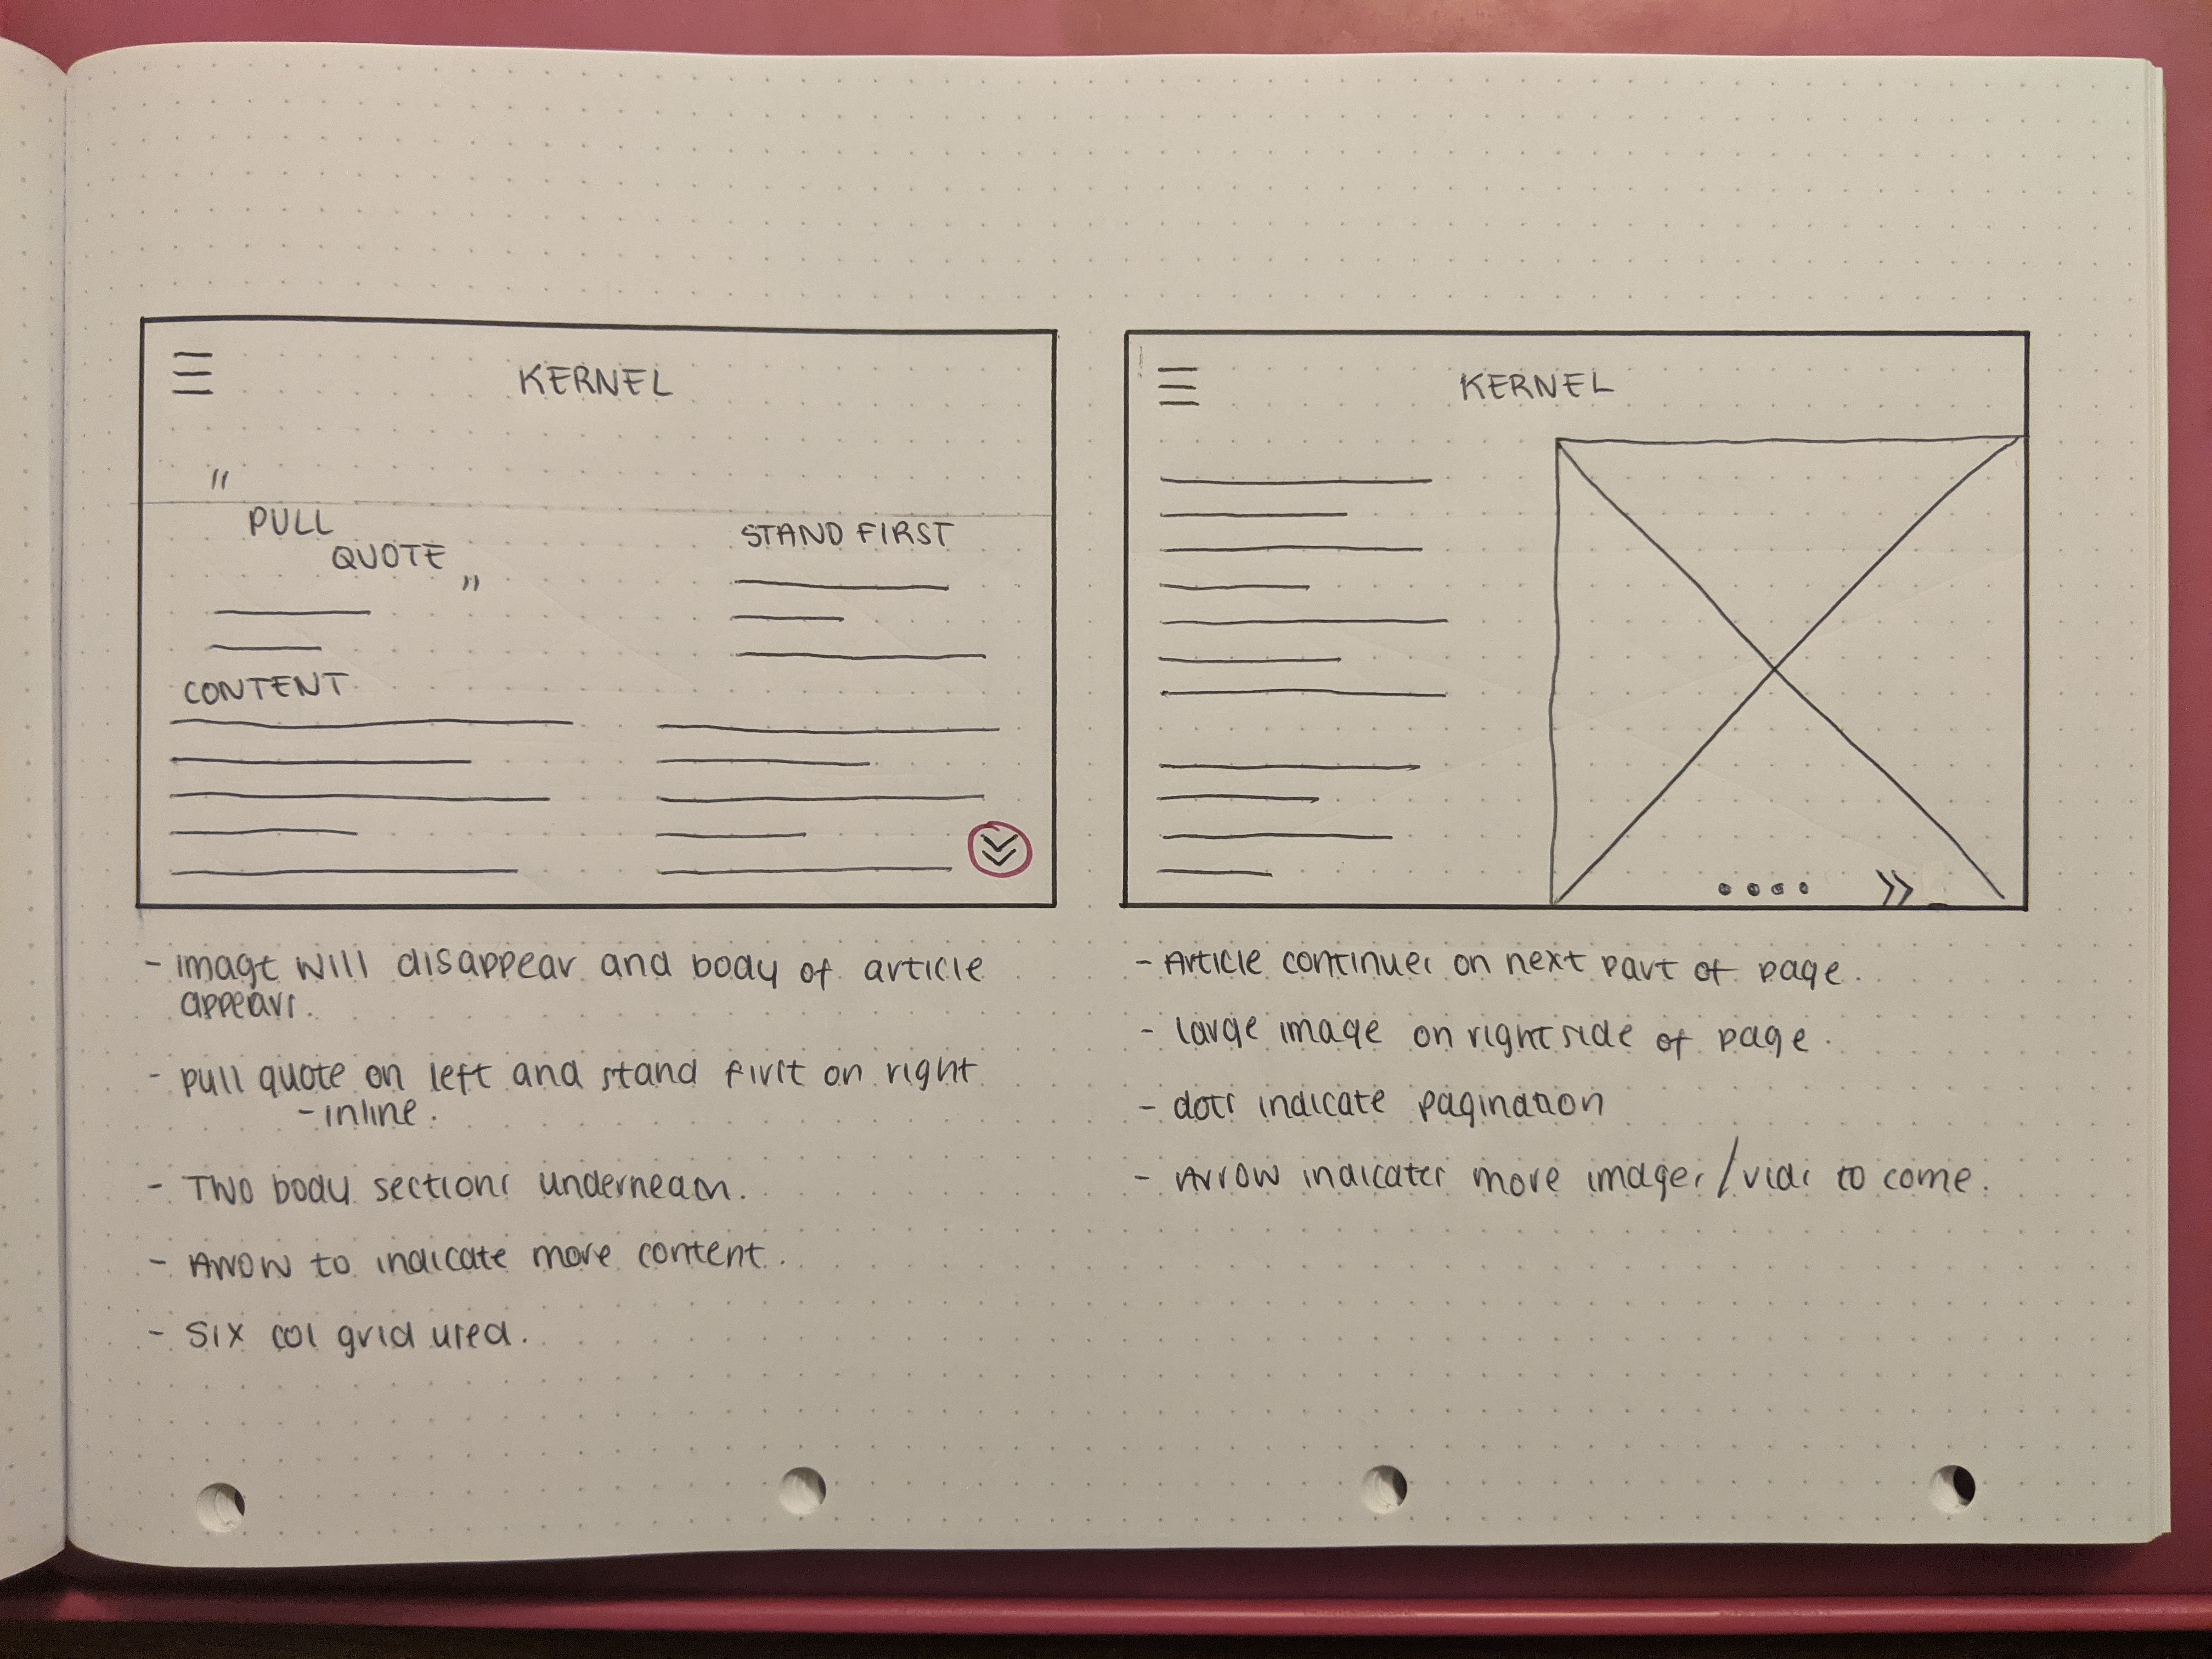 KERNEL
"
PULL
QUOTE "
STAND FIRST
CONTENT
- image will disappear and body of article
appears.
- pull quote on left and stand first on right
- inline.
- Two body sections underneath.
- Arrow to indicate more content.
- Six col grid used.
KERNEL
- Article continues on next part of page.
- large image on right side of page.
- dots indicate pagination
- Arrow indicates more images/vids to come.